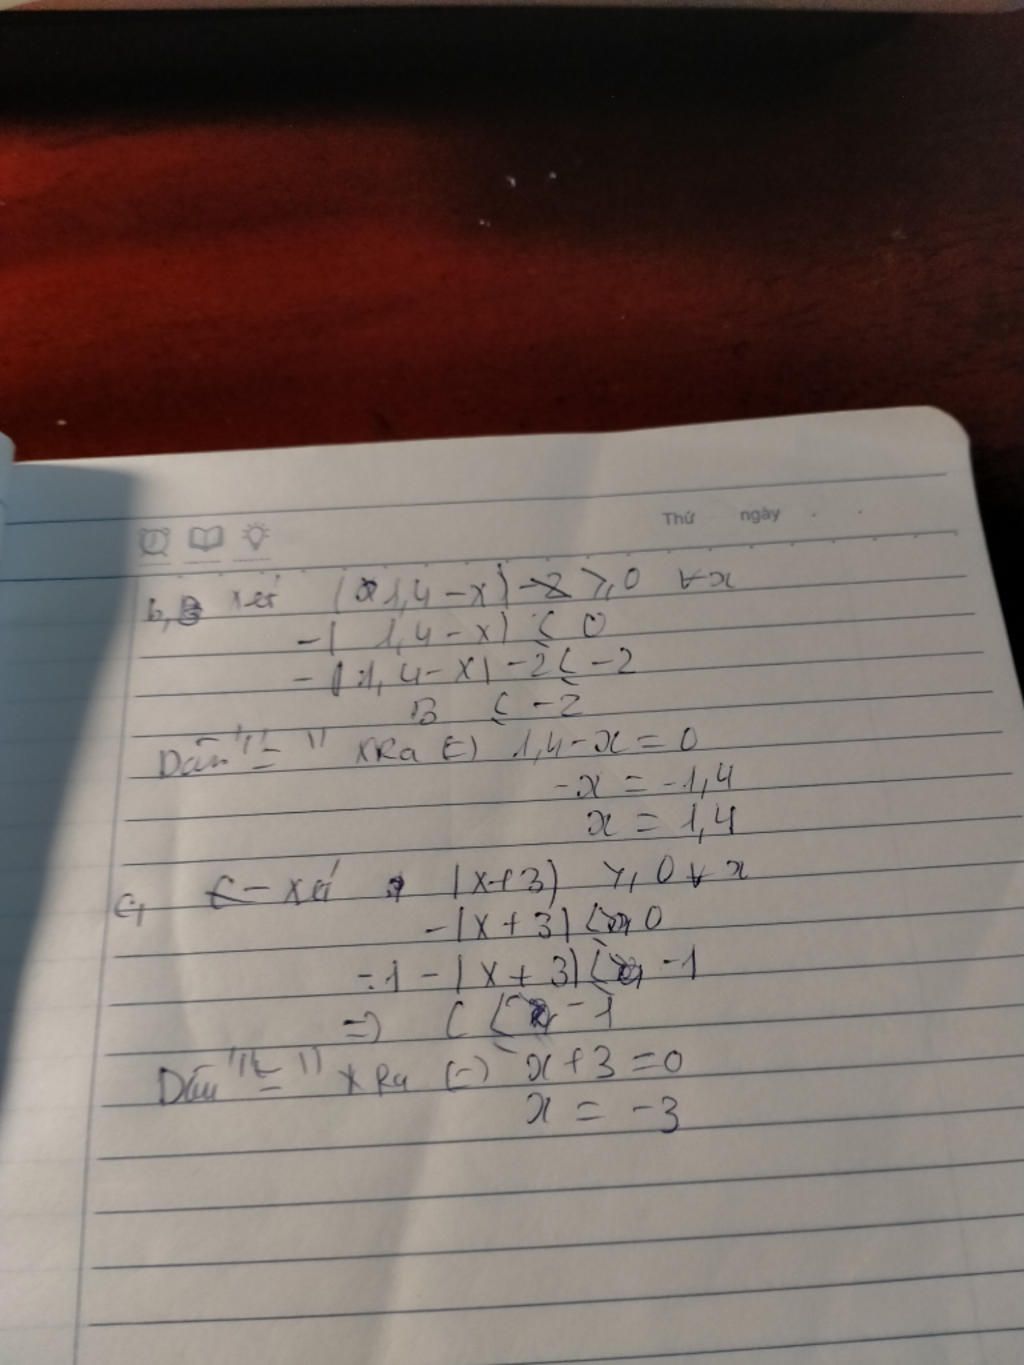 Thứ ngày
b, Xét |1,4 - x| ≥ 0 ∀x
-| 1,4 - x| ≤ 0
-|1,4 - x| - 2 ≤ -2
B ≤ -2
Dấu "=" xRa (=) 1,4 - x = 0
-x = -1,4
x = 1,4
c, Xét |x+3| ≥ 0 ∀ x
-|x + 3| ≤ 0
-1 - |x + 3| ≤ -1
=> C ≤ -1
Dấu "=" xRa (=) x + 3 = 0
x = -3